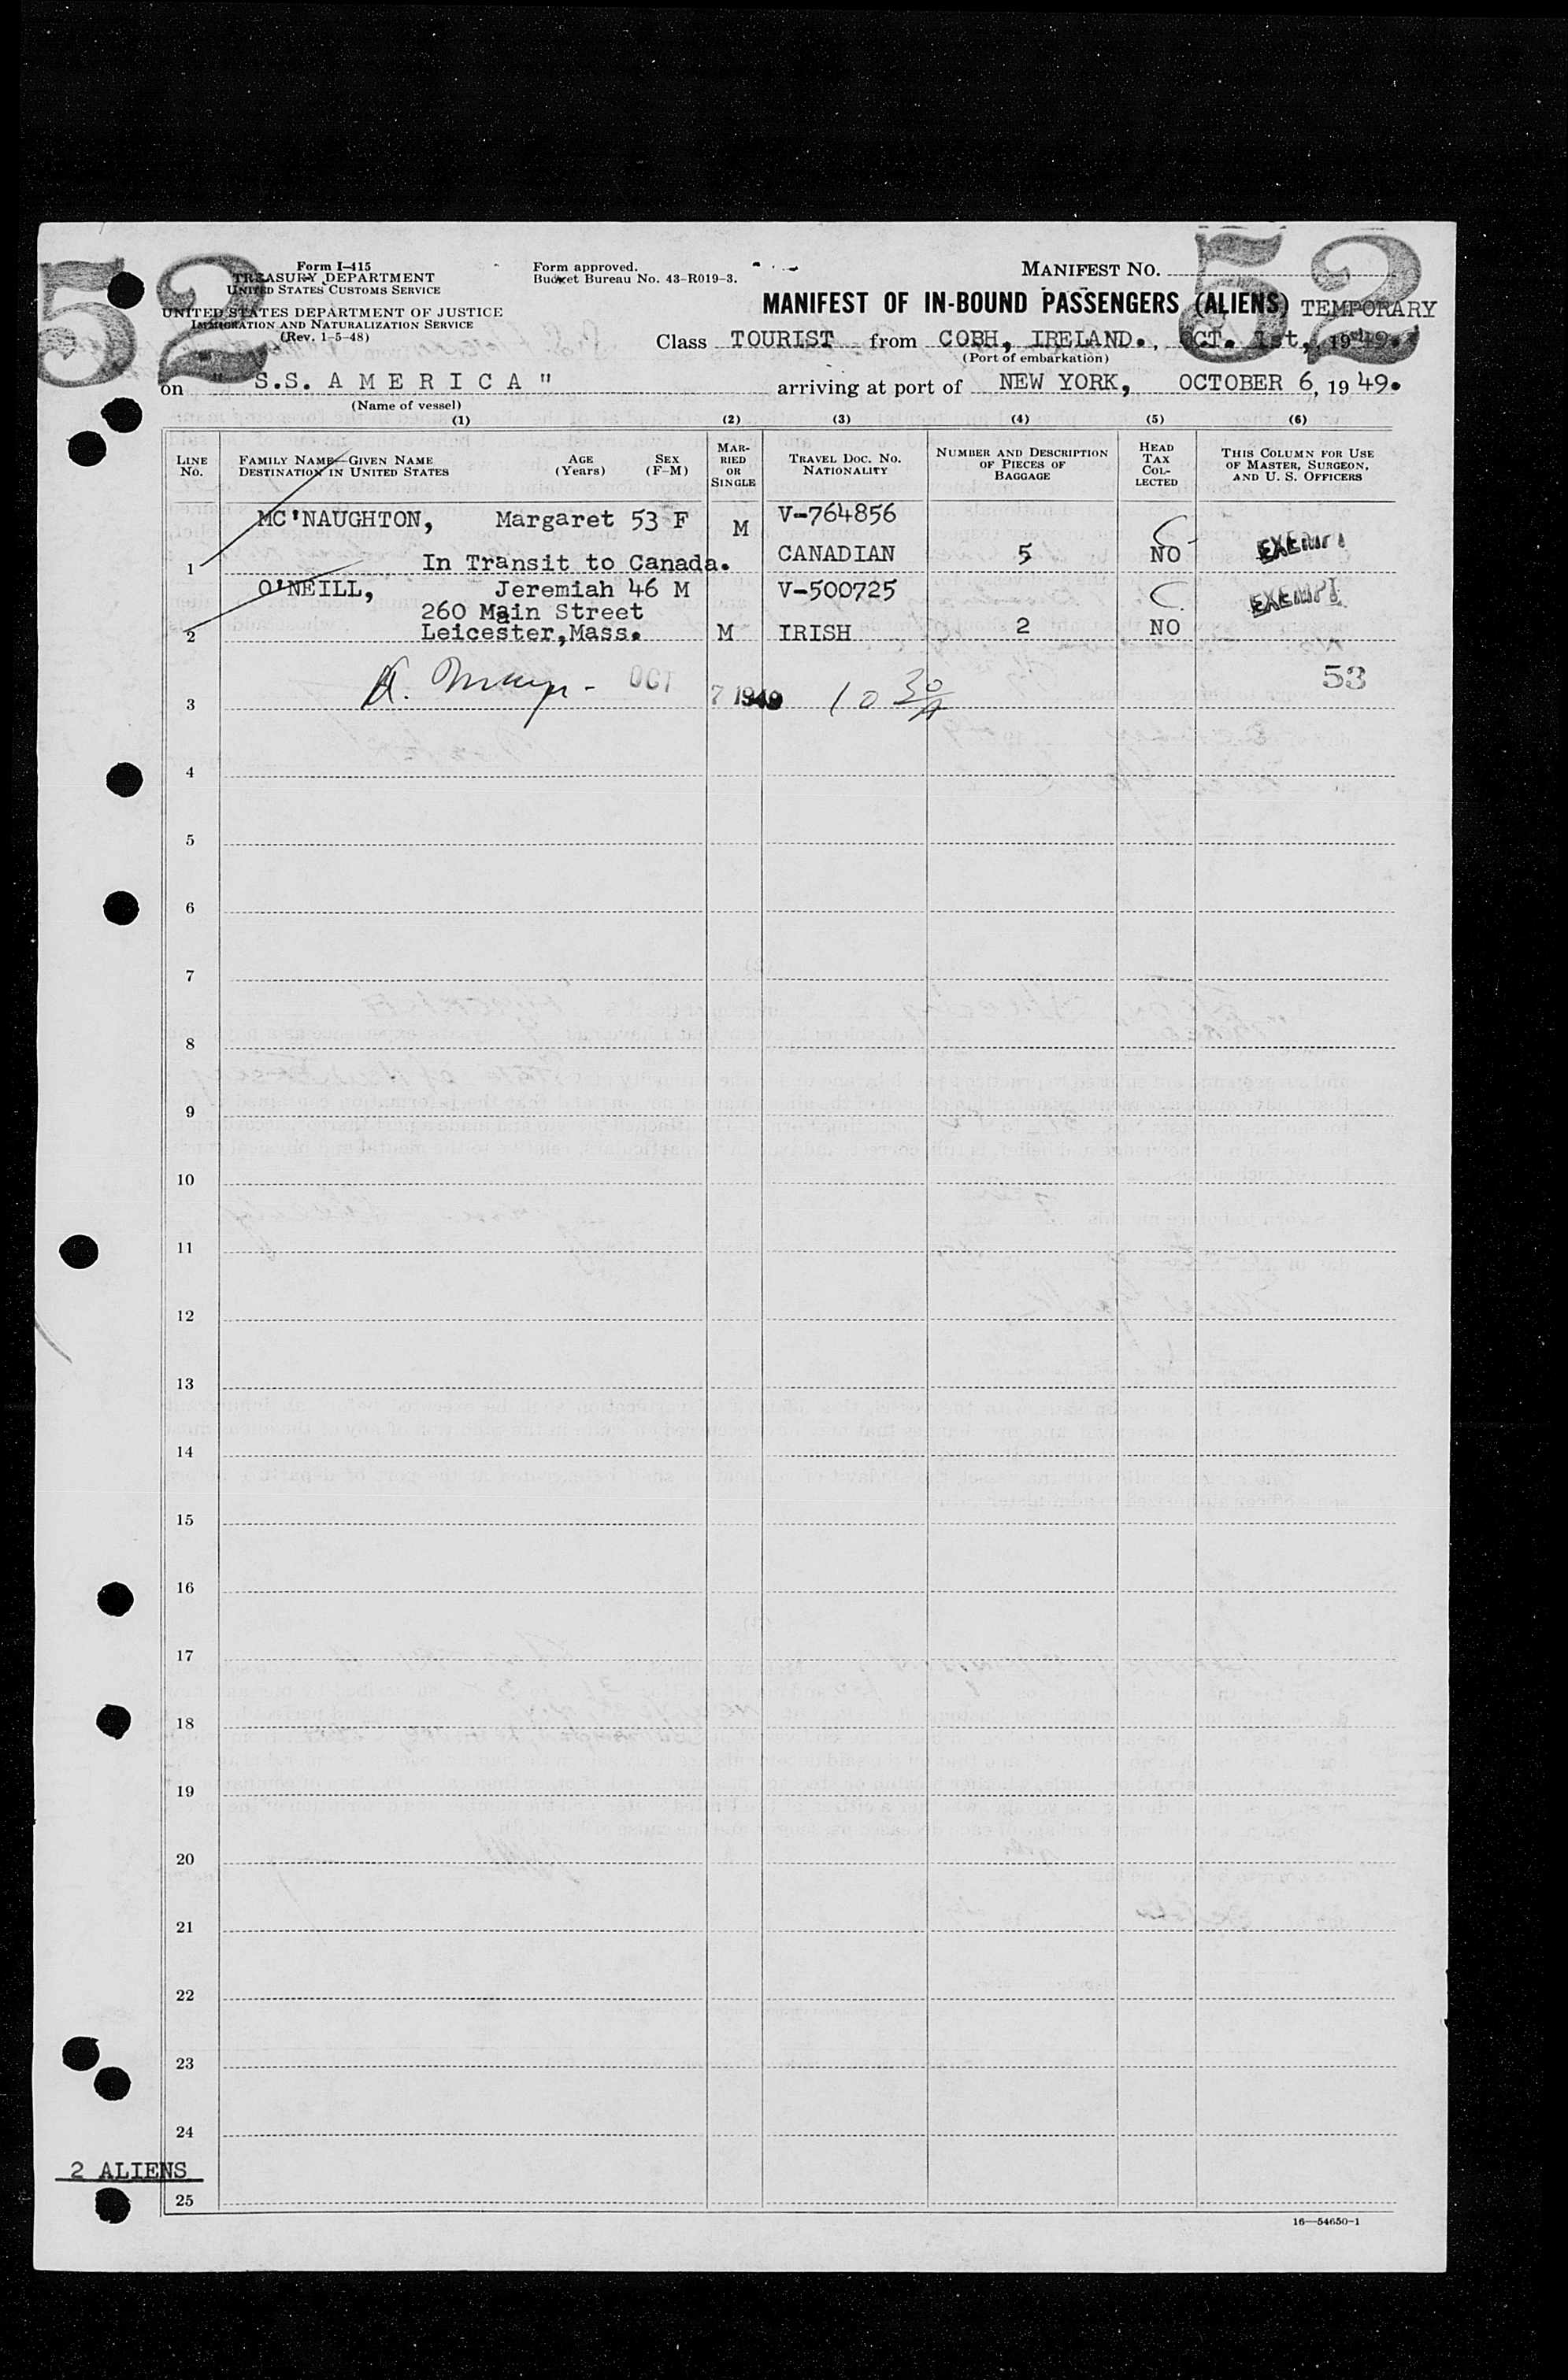 52 52
Form I-415
TREASURY DEPARTMENT
UNITED STATES CUSTOMS SERVICE
UNITED STATES DEPARTMENT OF JUSTICE
IMMIGRATION AND NATURALIZATION SERVICE
(Rev. 1-5-48)
Form approved.
Budget Bureau No. 43-R019-3.
MANIFEST NO.
MANIFEST OF IN-BOUND PASSENGERS (ALIENS) TEMPORARY
Class TOURIST from COBH, IRELAND., OCT. 1st, 1949.
(Port of embarkation)
on "S.S. A M E R I C A" arriving at port of NEW YORK, OCTOBER 6, 1949.
(Name of vessel)
(1) (2) (3) (4) (5) (6)
LINE No. FAMILY NAME—GIVEN NAME DESTINATION IN UNITED STATES AGE (Years) SEX (F-M) MARRIED OR SINGLE TRAVEL DOC. NO. NATIONALITY NUMBER AND DESCRIPTION OF PIECES OF BAGGAGE HEAD TAX COLLECTED THIS COLUMN FOR USE OF MASTER, SURGEON, AND U. S. OFFICERS
MC'NAUGHTON, Margaret 53 F M V-764856
CANADIAN 5 NO EXEMPT
1 In Transit to Canada.
O'NEILL, Jeremiah 46 M V-500725 EXEMPT
260 Main Street
2 Leicester,Mass. M IRISH 2 NO
OCT 7 1949 10 30/A 53
3
4
5
6
7
8
9
10
11
12
13
14
15
16
17
18
19
20
21
22
23
24
2 ALIENS
25
16—54650-1